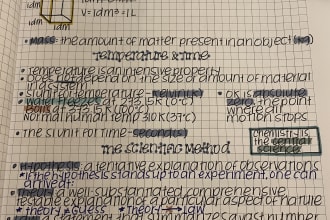 1dm
1dm
V = 1dm³ = 1L
1dm
• Mass: the amount of matter present in an object (kg)
Temperature & Time
• Temperature is an intensive property
• Does not depend on the size or amount of material in a system
• SI unit of temperature - Kelvin (K)
• 0K is absolute zero, the point where all motion stops
• Water freezes at 273.15K (0°C)
Boils at 373.15K (100°C)
Normal human temp 310K (37°C)
• The SI unit for time - second (s)
chemistry is the central science
The Scientific Method
• Hypothesis: a tentative explanation of observations
• if the hypothesis stands up to an experiment, one can arrive at:
• Theory: a well-substantiated, comprehensive, testable explanation of a particular aspect of nature
* theory ≠ guess * Theory → Law